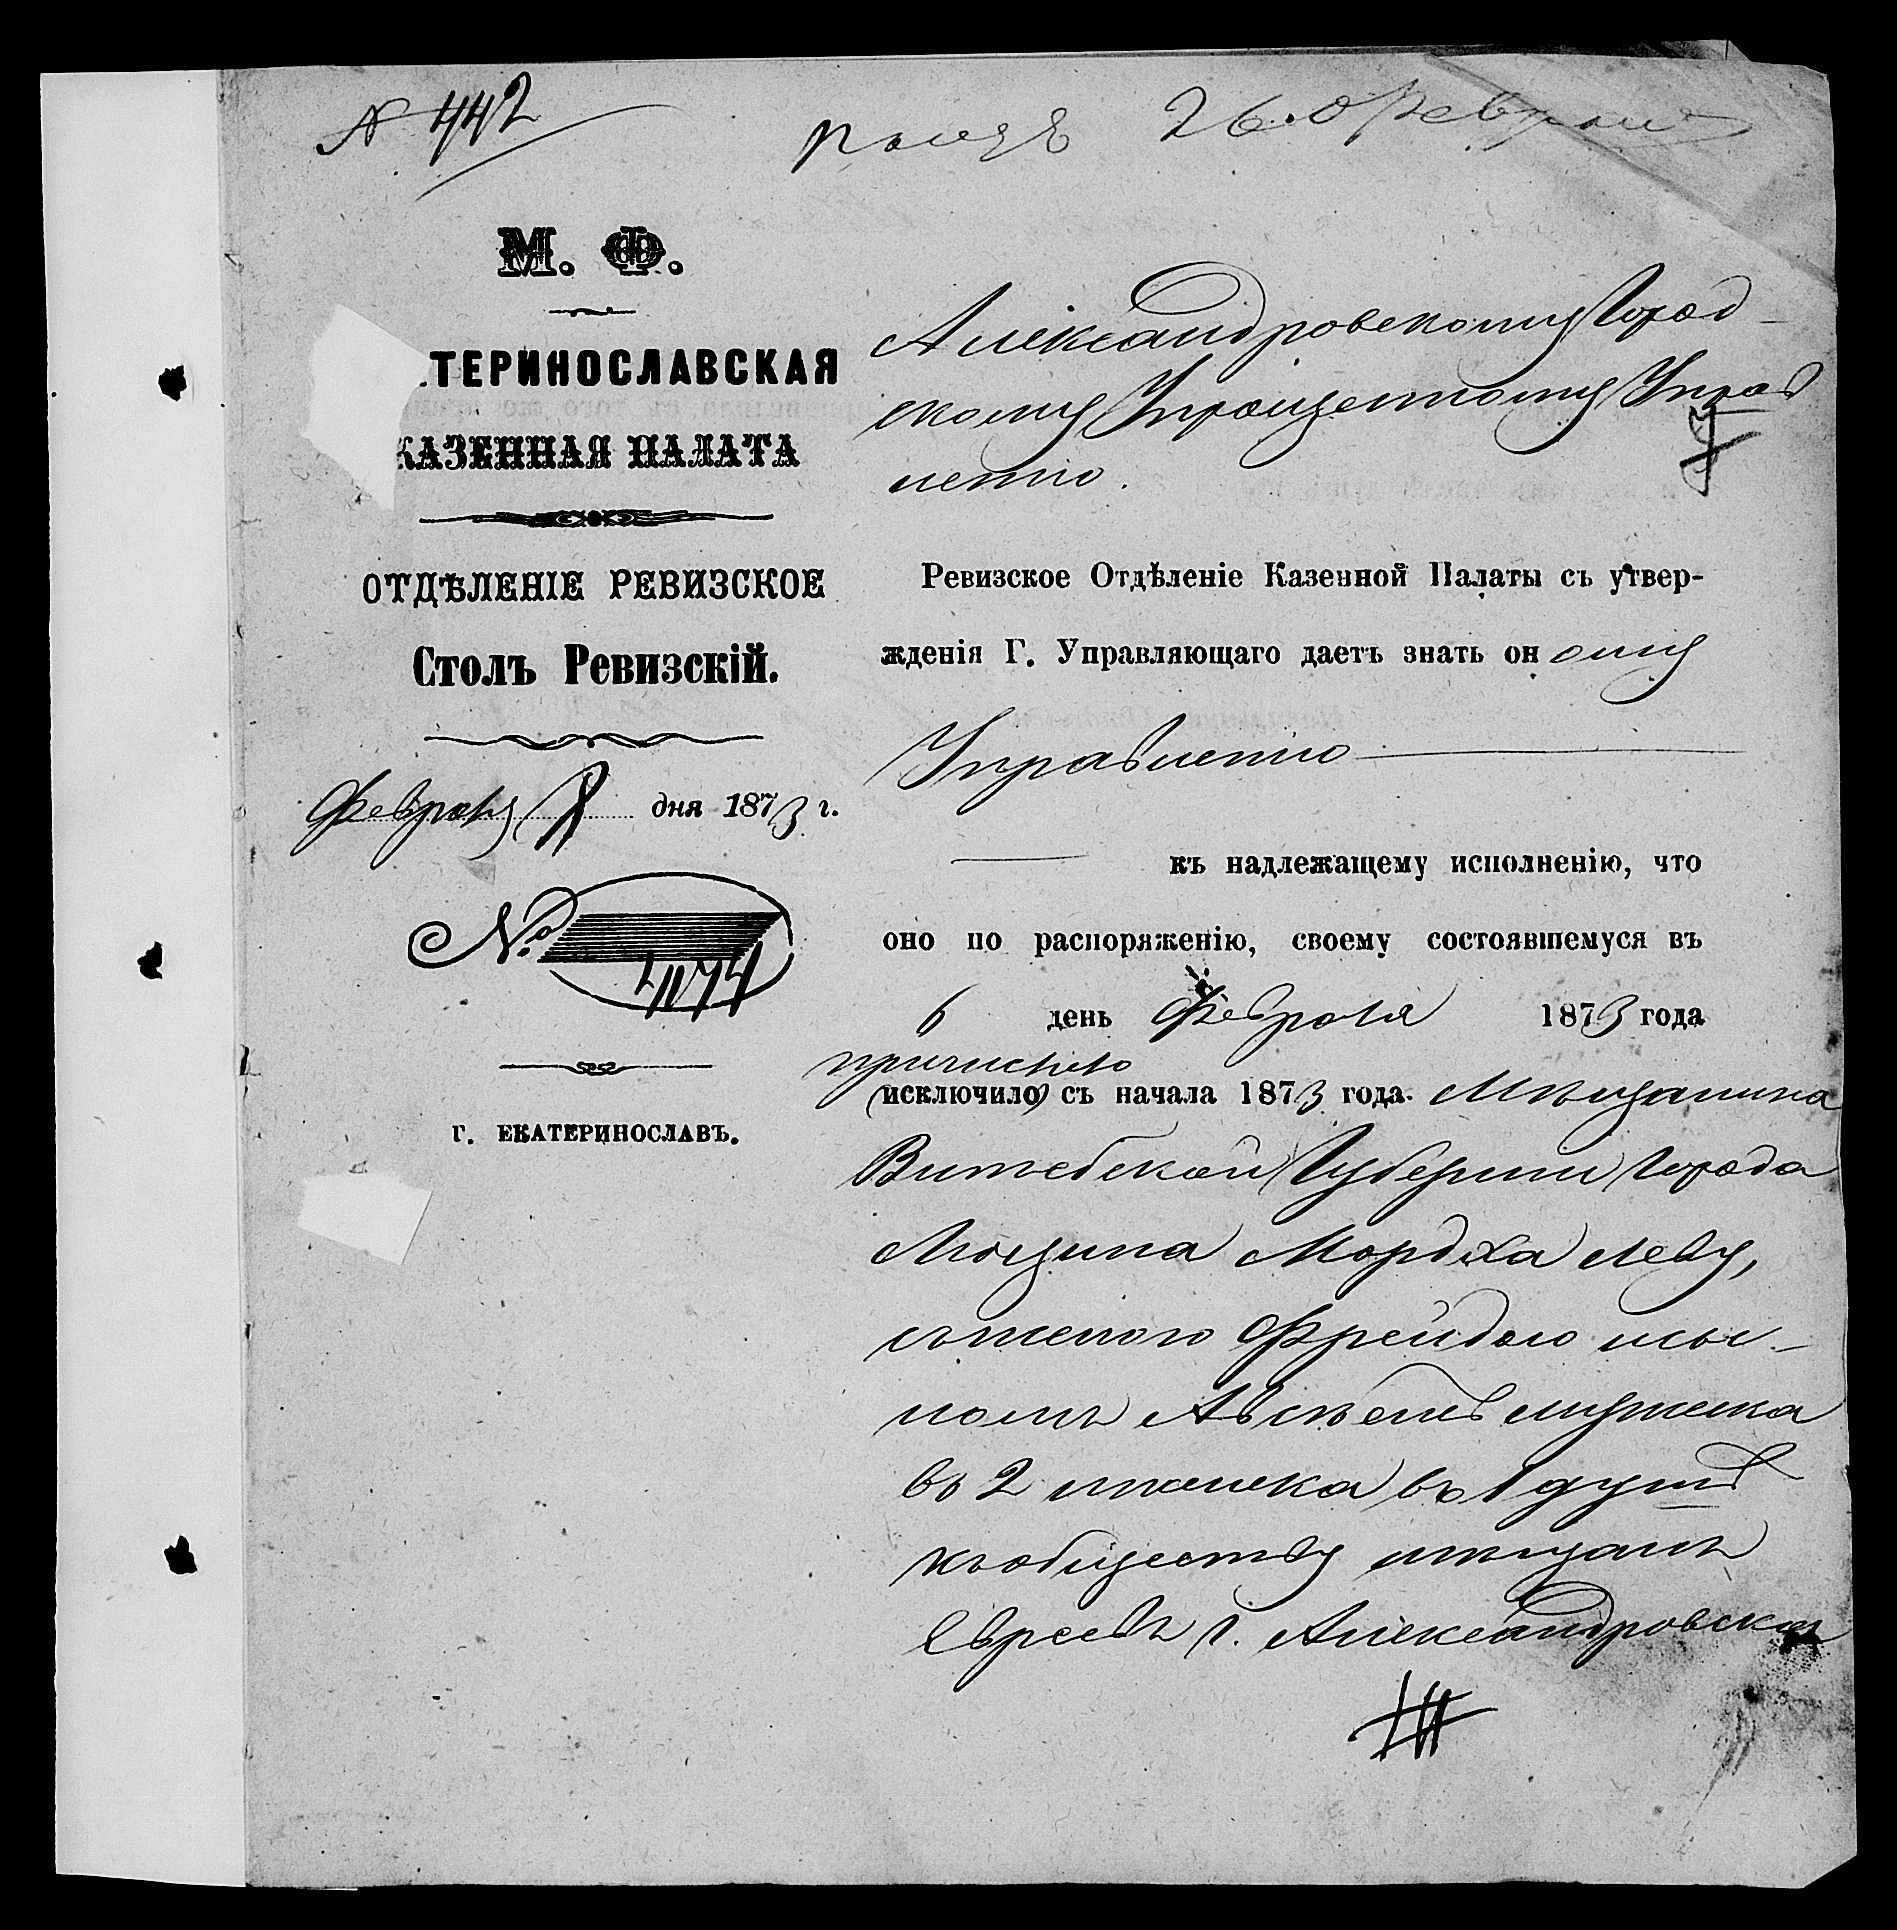 № 442
26 Февраля
М. Ф.
ТЕРИНОСЛАВСКАЯ
КАЗЕННАЯ ПАЛАТА
ОТДѢЛЕНІЕ РЕВИЗСКОЕ
Столъ Ревизскій.
Февраля дня 1873 г.
№
г. ЕКАТЕРИНОСЛАВЪ.
Александровскому Город-
скому Упрощенному Управ
ленію.
Ревизское Отдѣленіе Казенной Палаты съ утвер-
жденія Г. Управляющаго даетъ знать он ому
Управленію
къ надлежащему исполненію, что
оно по распоряженію, своему состоявшемуся въ
6 день Февраля 1873 года
причислило
(исключило) съ начала 1873 года. Мѣщанина
Витебской Губерніи города
Люцина Мордха Леву,
съ женою Фрейдою и сы-
номъ мужеска
въ 2 и женска въ 1 душѣ
къ обществу мѣщанъ
Евреевъ г. Александровска